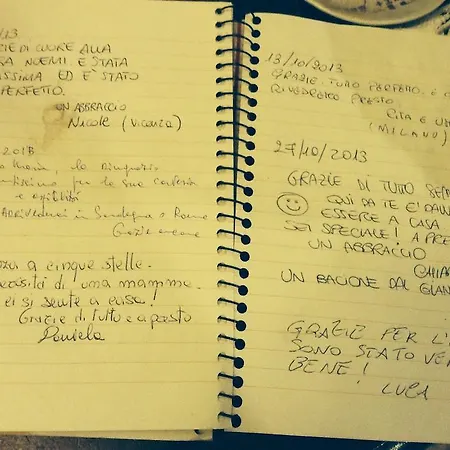 13
ZIE DI CUORE ALLA
RA NOEMI. E' STATA
ISSIMA ED E' STATO
PERFETTO.
UN ABBRACCIO
NICOLE (VICENZA)
2013
la ringrazio
per la sua cortesia
e
in Sardegna o Roma
Grazie ancora
a cinque stelle.
di una mamma.
ci si sente a casa!
Grazie di tutto e a presto
Daniela
13/10/2013
GRAZIE. TUTTO PERFETTO. E
RIVEDERCI PRESTO.
RITA E
(MILANO)
27/10/2013
GRAZIE DI TUTTO
QUI DA TE E'
ESSERE A CASA
SEI SPECIALE! A PRE
UN ABBRACCIO
CHIAR
UN BACIONE DAL
GRAZIE PER L'
SONO STATO VE
BENE!
LUCA